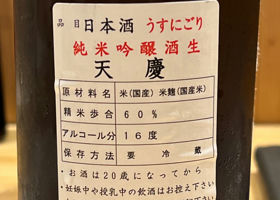 品目 日本酒 うすにごり
純米吟醸酒生
天慶
原材料名 米(国産) 米麹(国産米)
精米歩合 60%
アルコール分 16度
保存方法 要冷蔵
・お酒は20歳になってから
・妊娠中や授乳中の飲酒はお控え下さい